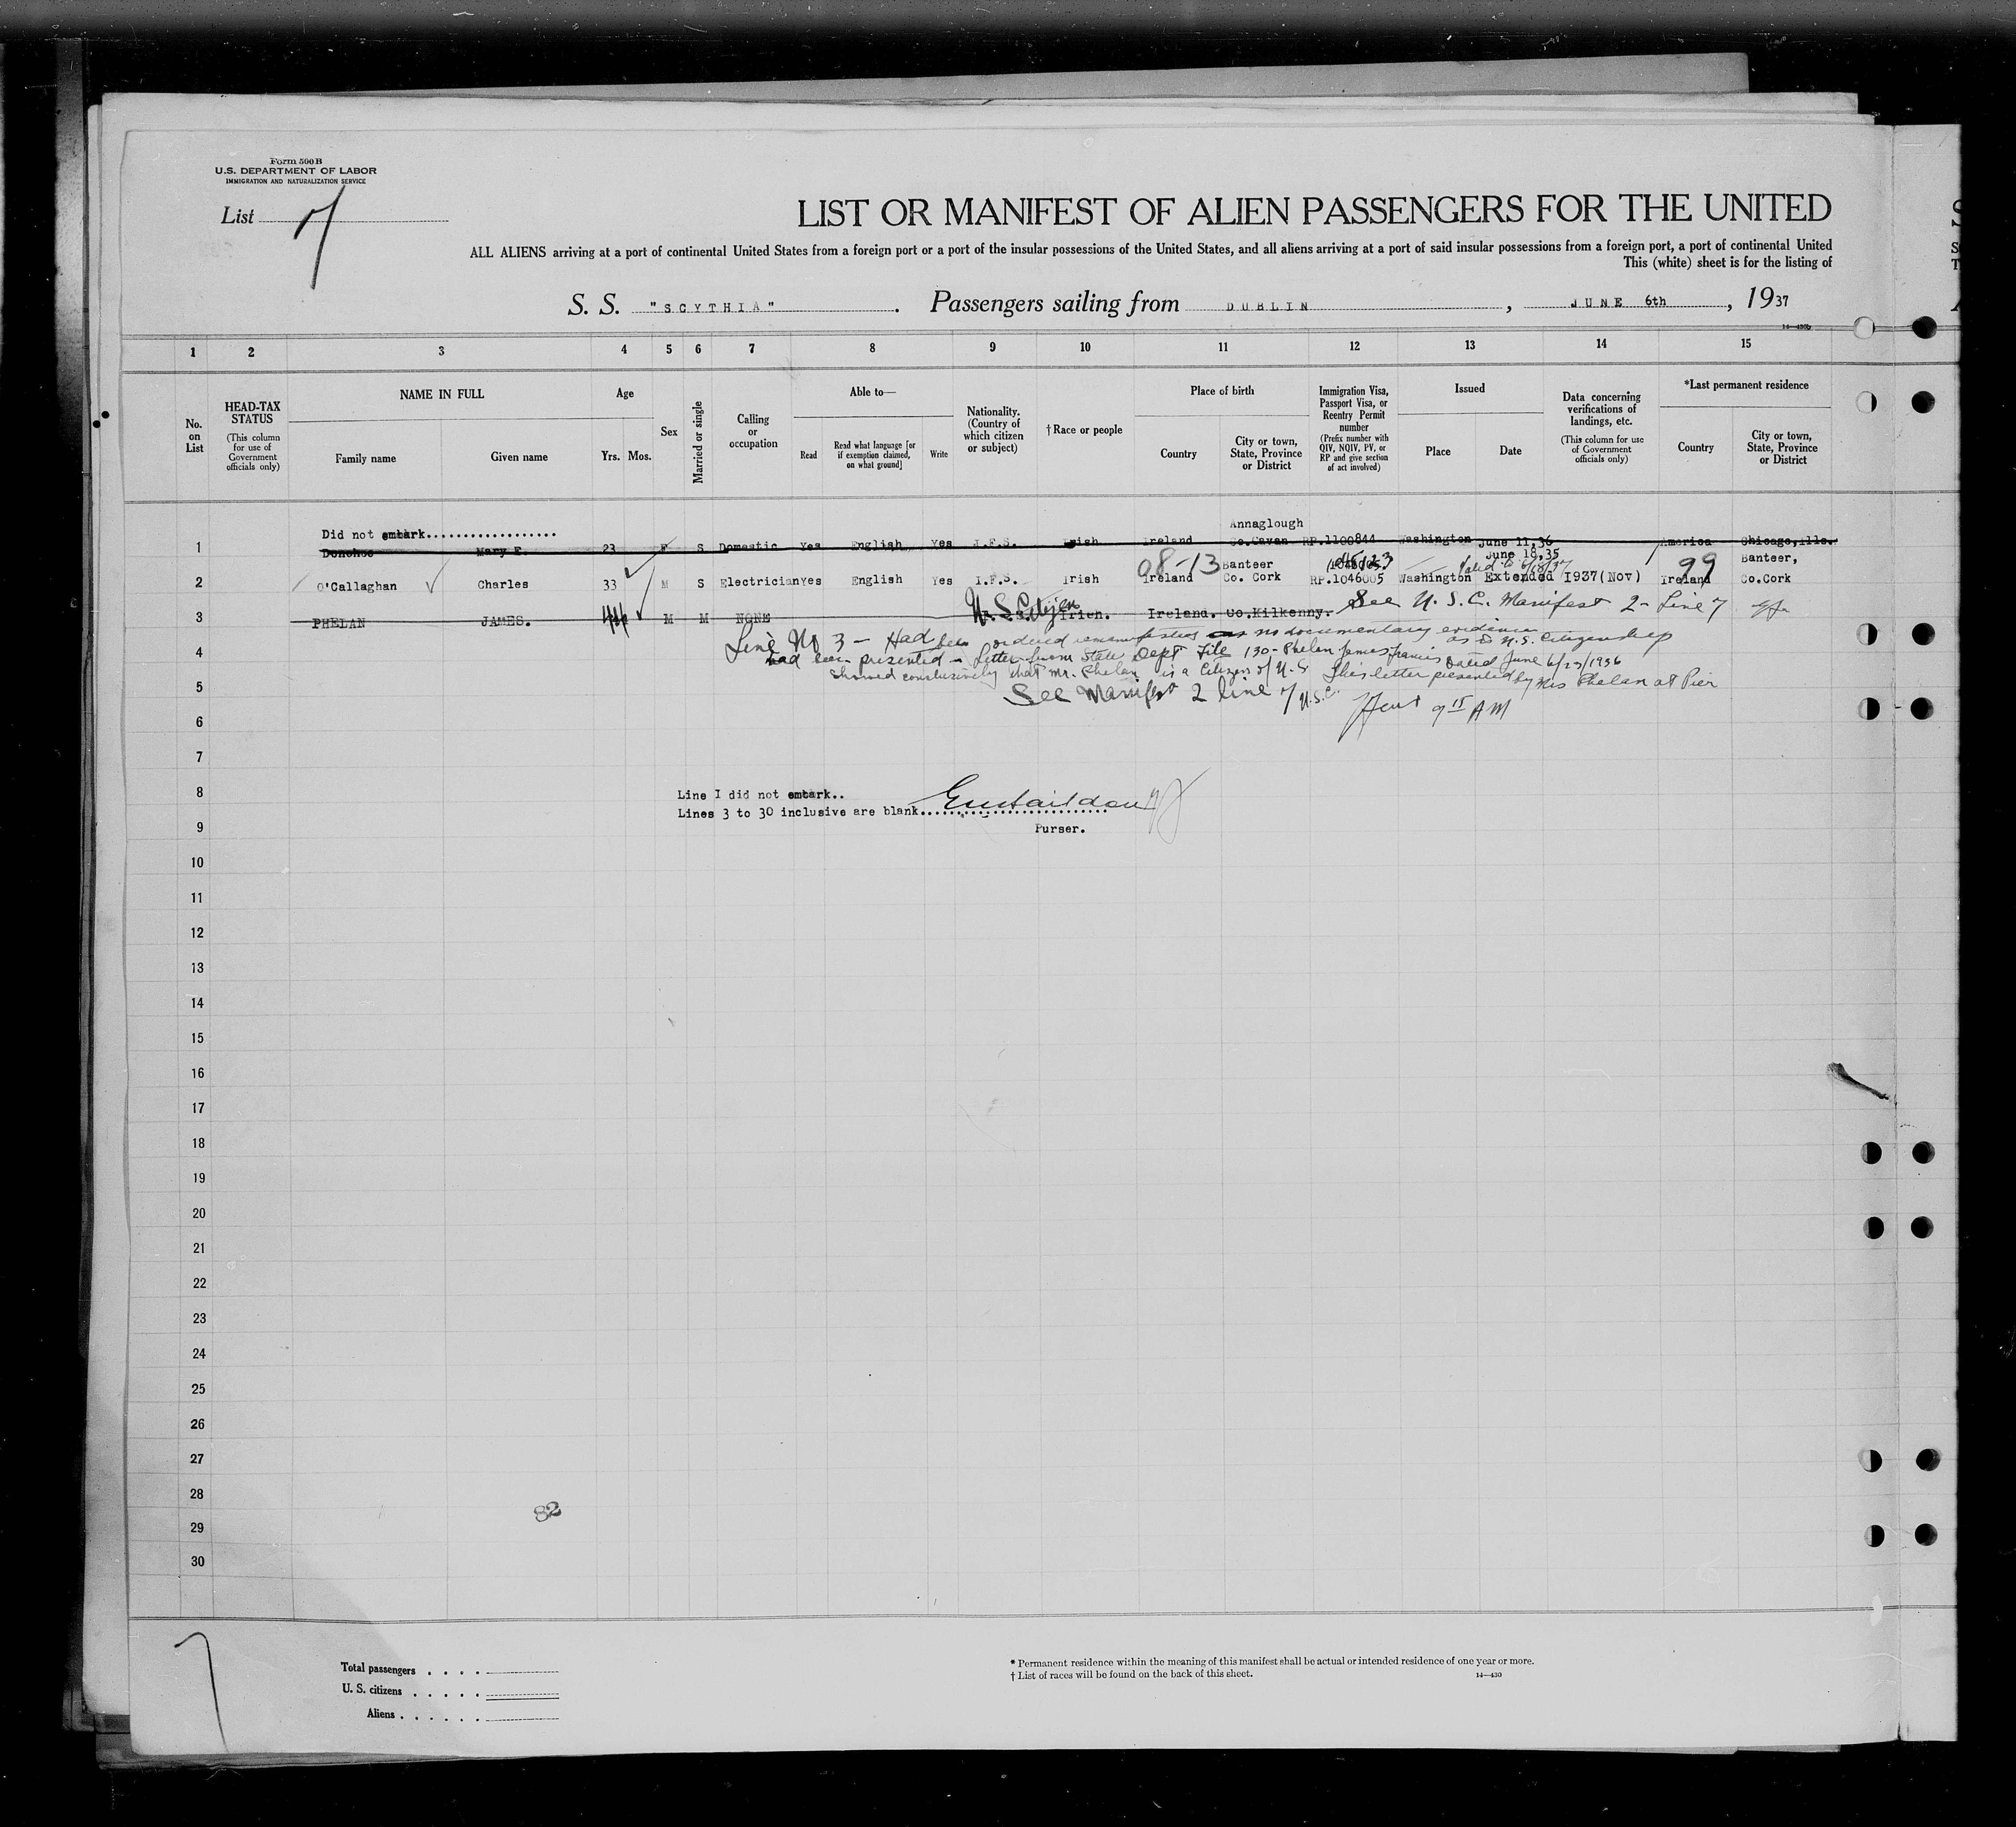 Form 500B
U.S. DEPARTMENT OF LABOR
IMMIGRATION AND NATURALIZATION SERVICE
List 7
LIST OR MANIFEST OF ALIEN PASSENGERS FOR THE UNITED
ALL ALIENS arriving at a port of continental United States from a foreign port or a port of the insular possessions of the United States, and all aliens arriving at a port of said insular possessions from a foreign port, a port of continental United
This (white) sheet is for the listing of
S. S. "SCYTHIA". Passengers sailing from DUBLIN, JUNE 6th, 1937
14—430b
1 2 3 4 5 6 7 8 9 10 11 12 13 14 15
No. on List
HEAD-TAX STATUS (This column for use of Government officials only)
NAME IN FULL
Family name Given name
Age
Yrs. Mos.
Sex
Married or single
Calling or occupation
Able to—
Read Read what language [or if exemption claimed, on what ground] Write
Nationality. (Country of which citizen or subject)
†Race or people
Place of birth
Country City or town, State, Province or District
Immigration Visa, Passport Visa, or Reentry Permit number (Prefix number with QIV, NQIV, PV, or RP and give section of act involved)
Issued
Place Date
Data concerning verifications of landings, etc. (This column for use of Government officials only)
*Last permanent residence
Country City or town, State, Province or District
Did not embark.................. Annaglough
1 Donohoe Mary E. 23 F S Domestic Yes English Yes I.F.S. Irish Ireland Co.Cavan RP.1100844 Washington June 11,36 America Chicago,Ills.
08-13 Banteer June 18,35 Valid to 6/18/37 99 Banteer,
2 O'Callaghan Charles 33 M S Electrician Yes English Yes I.F.S. Irish Ireland Co. Cork RP.1046005 Washington Extended 1937(Nov) Ireland Co.Cork
3 PHELAN JAMES. 44 M M NONE U.S. Citizen Irish. Ireland. Co.Kilkenny. See U.S.C. Manifest 2 - Line 7
Line No 3 - Had been ordered no documentary evidence as to U.S. Citizenship
4 had been presented - Letter from State Dept File 130 - Phelan James Francis Dated June 6/23/1936
showed conclusively that Mr. Phelan is a Citizen of U.S. This letter presented by Mrs Phelan at Pier
5 See Manifest 2 line 7 U.S.C.
9 15 AM
6
7
8 Line I did not embark..
Lines 3 to 30 inclusive are blank..........................
9 Purser.
10
11
12
13
14
15
16
17
18
19
20
21
22
23
24
25
26
27
28
82
29
30
7
Total passengers . . . .
U. S. citizens . . . . .
Aliens . . . . . .
* Permanent residence within the meaning of this manifest shall be actual or intended residence of one year or more.
† List of races will be found on the back of this sheet. 14—430